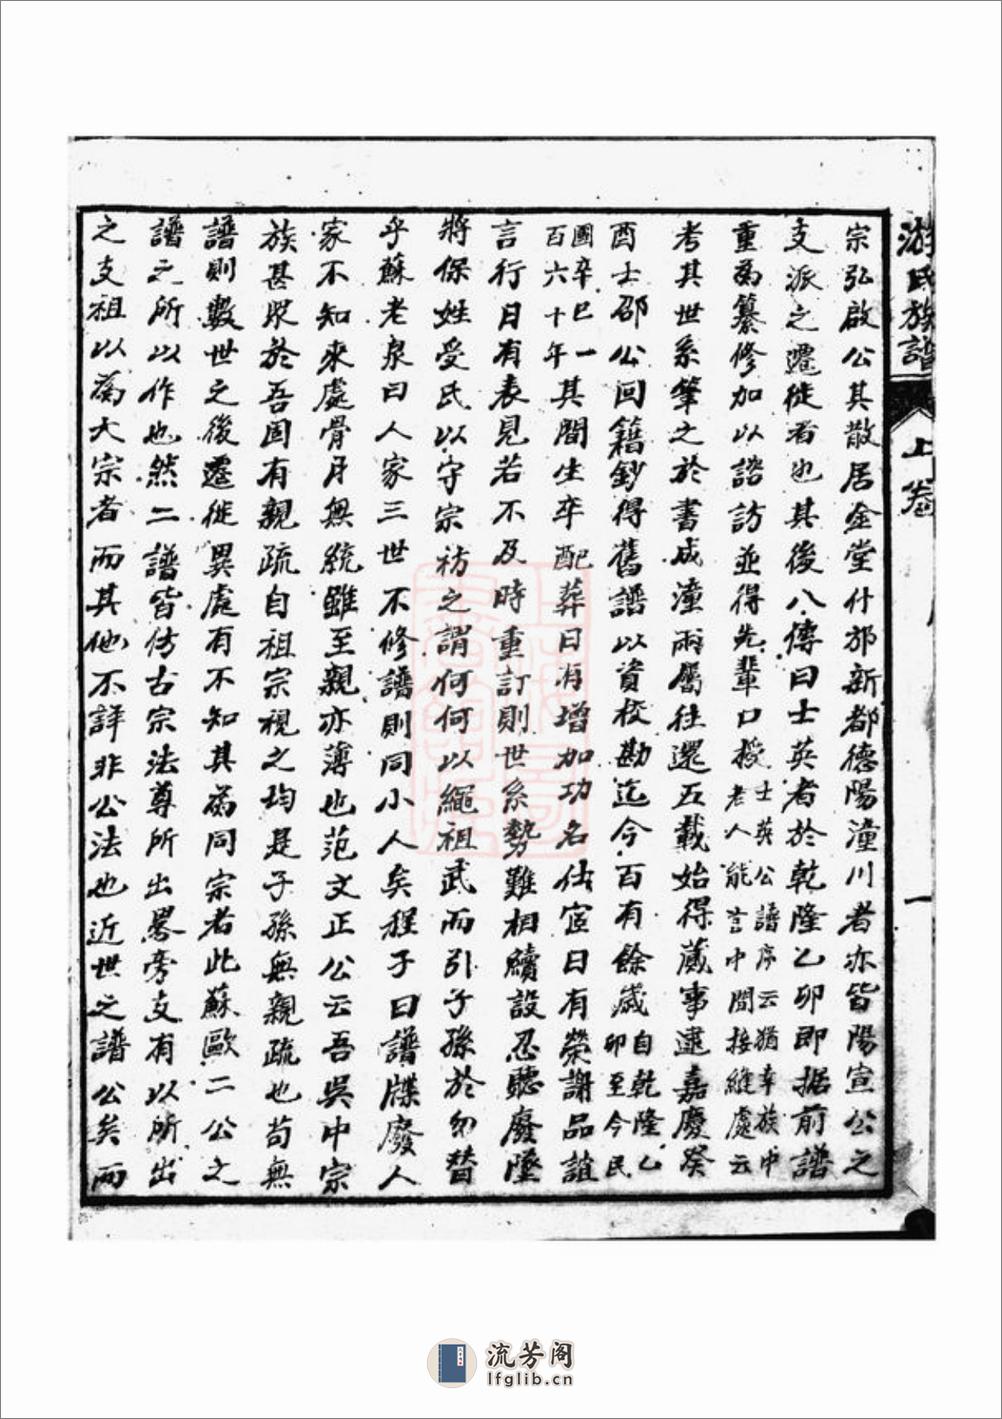 游氏族譜 上卷 序 一
宗弘啟公其散居金堂什邡新都德陽潼川者亦皆陽宣公之
支派之遷徙者也其後八傳曰士英者於乾隆乙卯即據前譜
重為纂修加以諮訪並得先輩口授士英公譜序云猶幸族中老人能言中間接縫處云
考其世系筆之於書成潼兩屬往還五載始得蕆事逮嘉慶癸
酉士邵公回籍鈔得舊譜以資校勘迄今百有餘歲自乾隆乙卯至今民
國辛巳一百六十年其間生卒配葬日有增加功名仕宦日有榮謝品誼
言行日有表見若不及時重訂則世系勢難相續設忍聽廢墜
將保姓受氏以守宗祊之謂何何以繩祖武而引子孫於勿替
乎蘇老泉曰人家三世不修譜則同小人矣程子曰譜牒廢人
家不知來處骨月無統雖至親亦薄也范文正公云吾吳中宗
族甚眾於吾固有親疏自祖宗視之均是子孫無親疏也苟無
譜則數世之後遷徙異處有不知其為同宗者此蘇歐二公之
譜之所以作也然二譜皆仿古宗法尊所出畧旁支有以所出
之支祖以為大宗者而其他不詳非公法也近世之譜公矣而
流芳阁
lfglib.cn